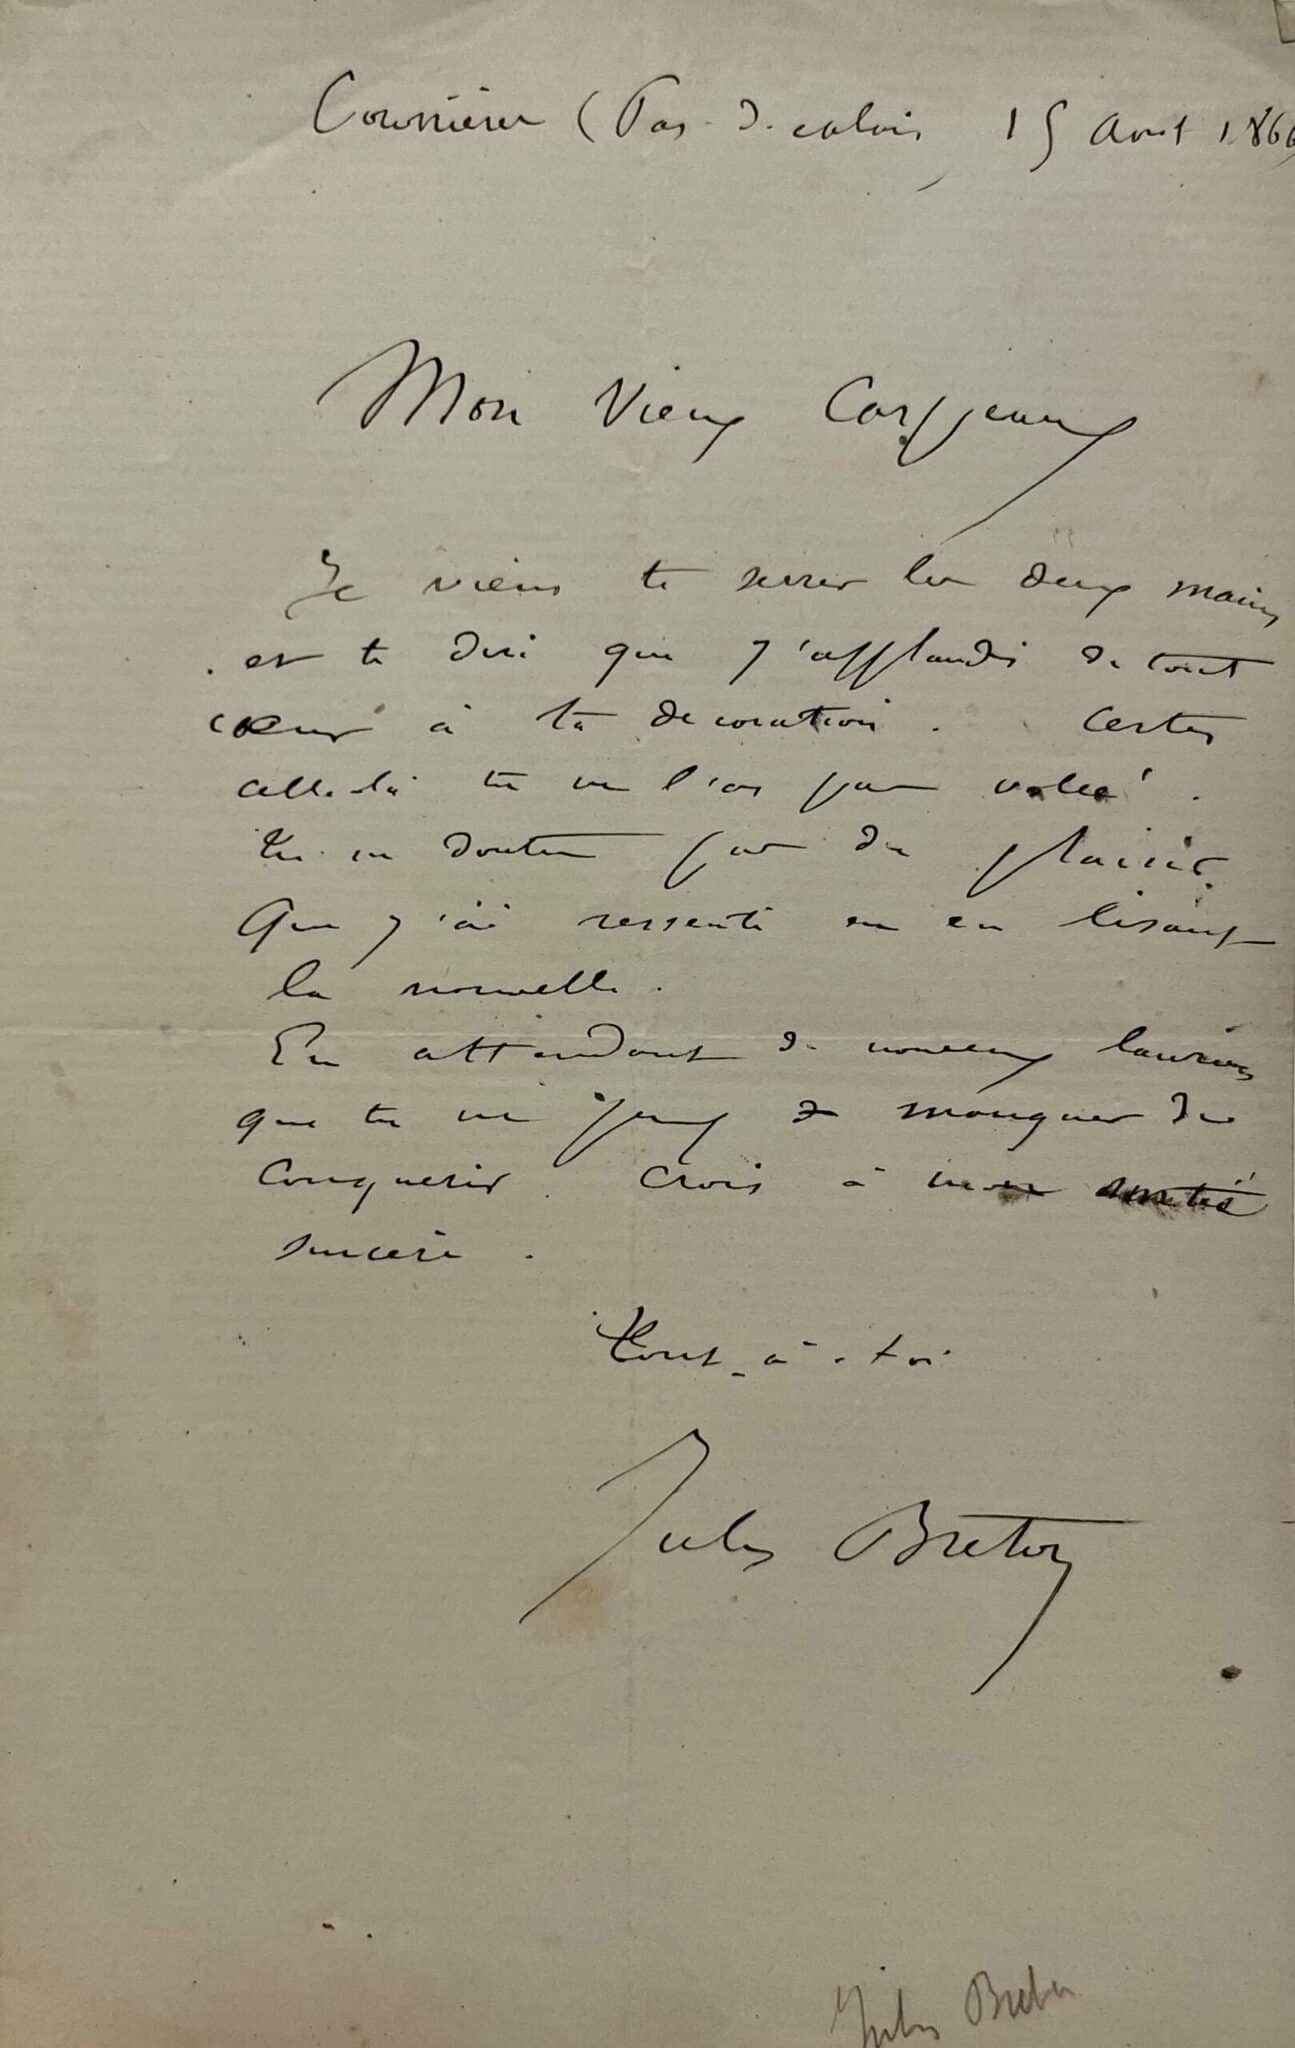 Courrières (Pas-de-calais, 15 Aout 1866
Mon Vieux Carpeaux
Je viens te serrer les deux mains
et te dire que j'applaudis de tout
cœur à ta decoration. Certes
celle-là tu ne l'as pas volée.
Tu ne doutes pas du plaisir
Que j'ai ressenti en en lisant
la nouvelle.
En attendant de nouveaux lauriers
que tu ne peux manquer de
Conquerir. Crois à mon amitié
sincère.
Tout-à-toi
Jules Breton
Jules Breton